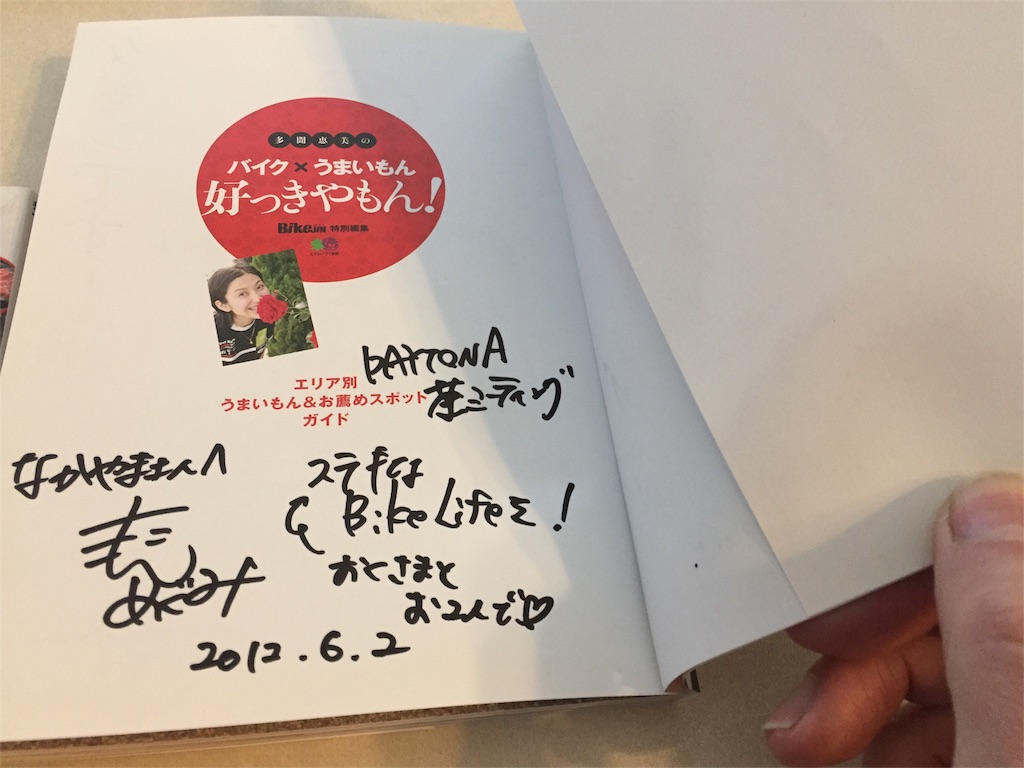 多聞恵美の
バイク×うまいもん
好っきやもん!
Bike.jin 特別編集
エリア別
うまいもん&お薦めスポット
ガイド
DAYTONA
茶ミーティング
なかやまさんへ
めぐみ
ステキな
Bike Lifeを!
おとさまと
お2人で♡
2012.6.2